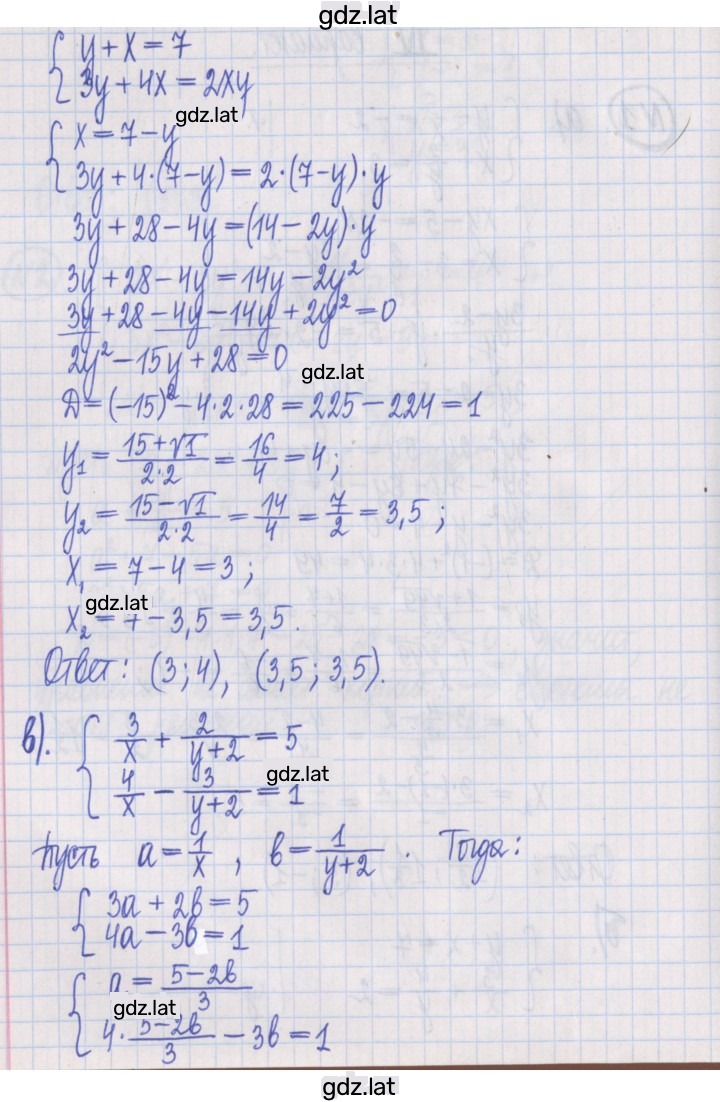 gdz.lat
{ y + x = 7
{ 3y + 4x = 2xy
gdz.lat
{ x = 7 − y
{ 3y + 4·(7 − y) = 2·(7 − y)·y
3y + 28 − 4y = (14 − 2y)·y
3y + 28 − 4y = 14y − 2y²
3y + 28 − 4y − 14y + 2y² = 0
2y² − 15y + 28 = 0
gdz.lat
D = (−15)² − 4·2·28 = 225 − 224 = 1
y₁ = (15 + √1)/(2·2) = 16/4 = 4 ;
y₂ = (15 − √1)/(2·2) = 14/4 = 7/2 = 3,5 ;
x₁ = 7 − 4 = 3 ;
gdz.lat
x₂ = 7 − 3,5 = 3,5.
Ответ: (3 ; 4), (3,5 ; 3,5).
в). { 3/x + 2/(y + 2) = 5
gdz.lat
{ 4/x − 3/(y + 2) = 1
Пусть a = 1/x , в = 1/(y + 2) . Тогда:
{ 3a + 2в = 5
{ 4a − 3в = 1
{ a = (5 − 2в)/3
gdz.lat
{ 4·(5 − 2в)/3 − 3в = 1
gdz.lat